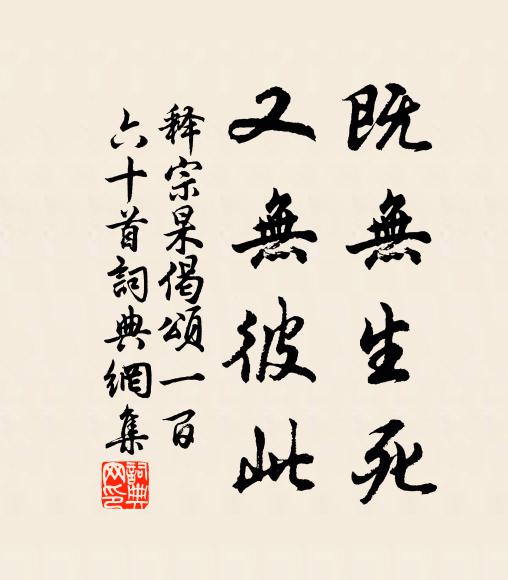 既無生死
又無彼此
释宗杲偈頌一百
六十首詞典網集
詞典
网印